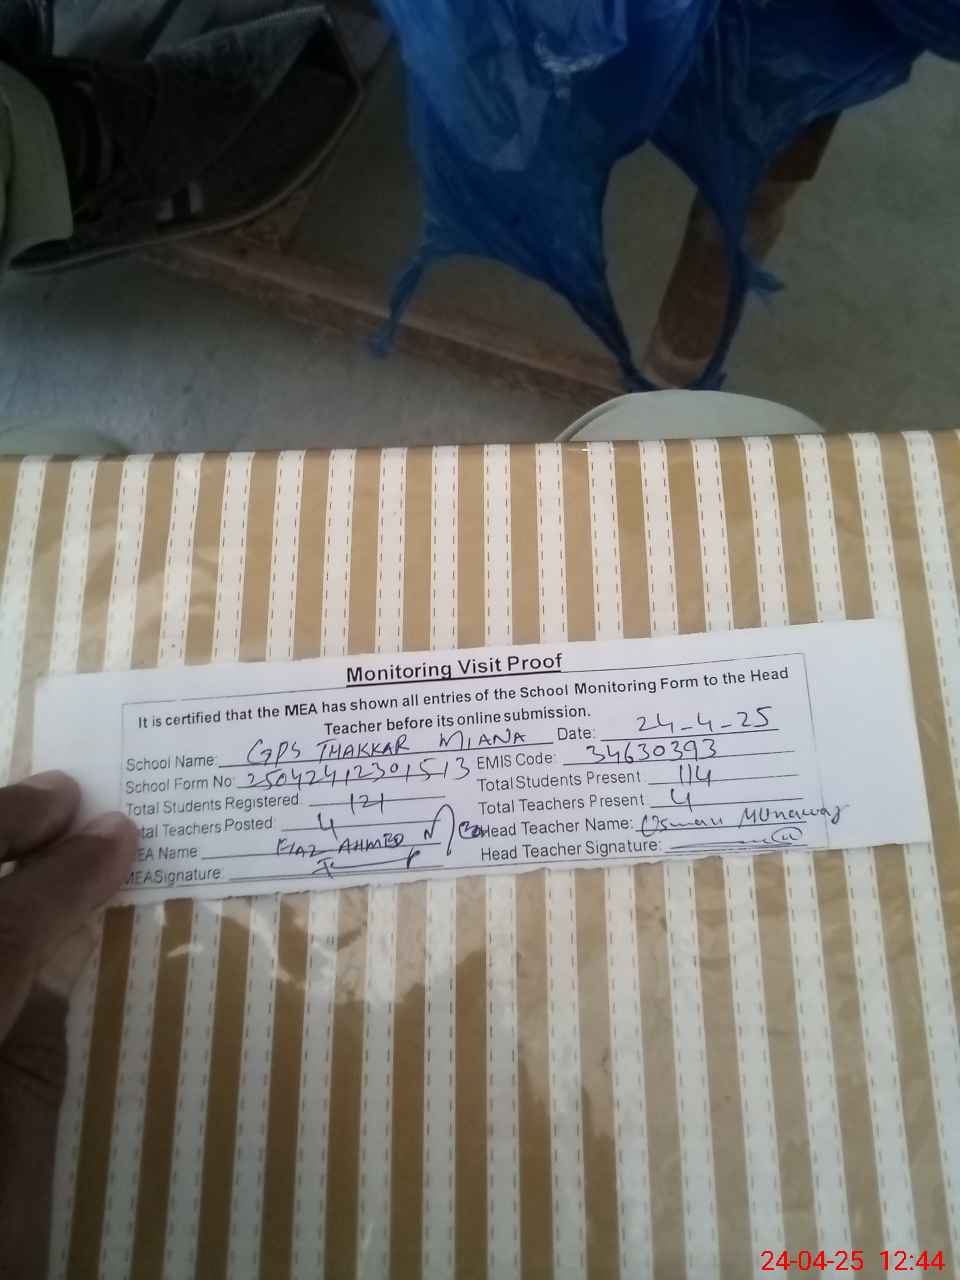 Monitoring Visit Proof
It is certified that the MEA has shown all entries of the School Monitoring Form to the Head
Teacher before its online submission.
School Name: GPS THAKKAR MIANA Date: 24-4-25
School Form No: 25042412301513 EMIS Code: 34630393
Total Students Registered: 121 Total Students Present 114
tal Teachers Posted: 4 Total Teachers Present 4
EA Name AHMED Head Teacher Name: Usman Munawar
MEASignature Head Teacher Signature:
24-04-25 12:44